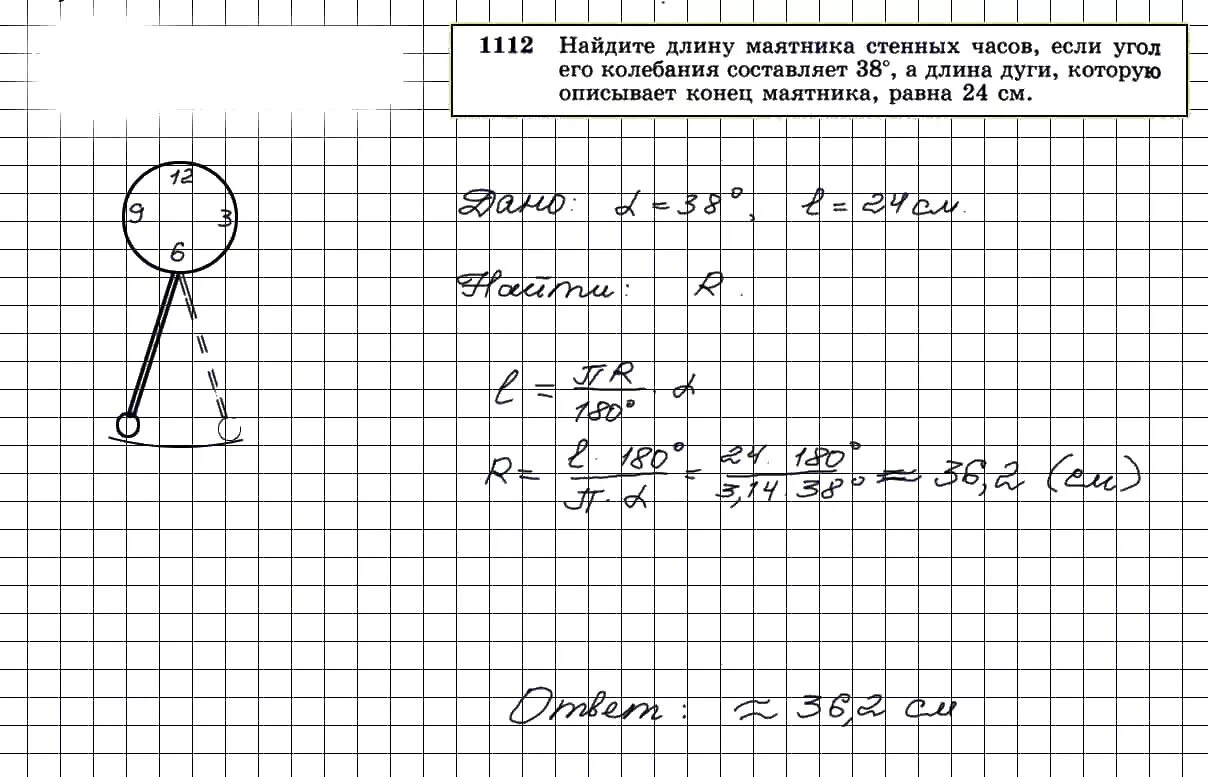 1112 Найдите длину маятника стенных часов, если угол
его колебания составляет 38°, а длина дуги, которую
описывает конец маятника, равна 24 см.
12
9 3
6
Дано: α = 38°, ℓ = 24 см.
Найти: R.
ℓ = πR/180° · α
R = ℓ · 180°/π · α = 24 · 180°/3,14 · 38° ≈ 36,2 (см)
Ответ: ≈ 36,2 см